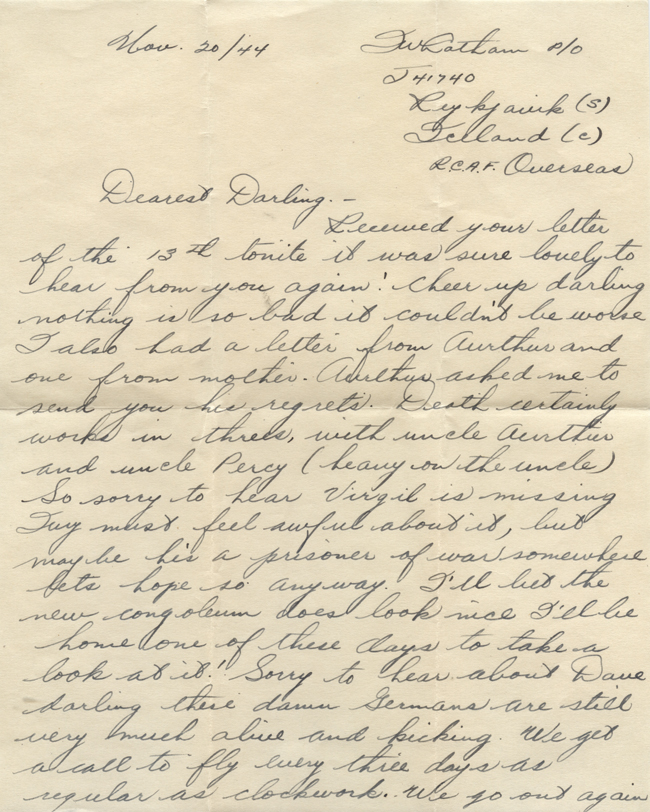 Nov. 20/44
J W Latham P/O
J41740
Reykjavik (S)
Iceland (C)
R.C.A.F. Overseas
Dearest Darling. -
Received your letter
of the 13th tonite it was sure lovely to
hear from you again! Cheer up darling
nothing is so bad it couldn't be worse
I also had a letter from Aurthur and
one from mother. Aurthur asked me to
send you his regrets. Death certainly
works in threes, with uncle Aurthur
and uncle Percy (heavy on the uncle)
So sorry to hear Virgil is missing
Ivy must feel awful about it, but
maybe his a prisoner of war somewhere
lets hope so anyway. I'll bet the
new congoleum does look nice I'll be
home one of these days to take a
look at it! Sorry to hear about Dave
darling these damn Germans are still
very much alive and kicking. We get
a call to fly every three days as
regular as clockwork. We go out again